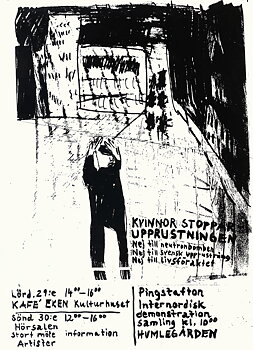 KVINNOR STOPPA
UPPRUSTNINGEN
Nej till neutronbomben
Nej till svensk upprustning
Nej till livsföraktet
Lörd. 29:e 14⁰⁰-16⁰⁰
KAFÉ EKEN Kulturhuset
Sönd. 30:e 12⁰⁰-16⁰⁰
Hörsalen
stort möte information
Artister
Pingstafton
Internordisk
demonstration
samling kl.
HUMLEGÅRDEN